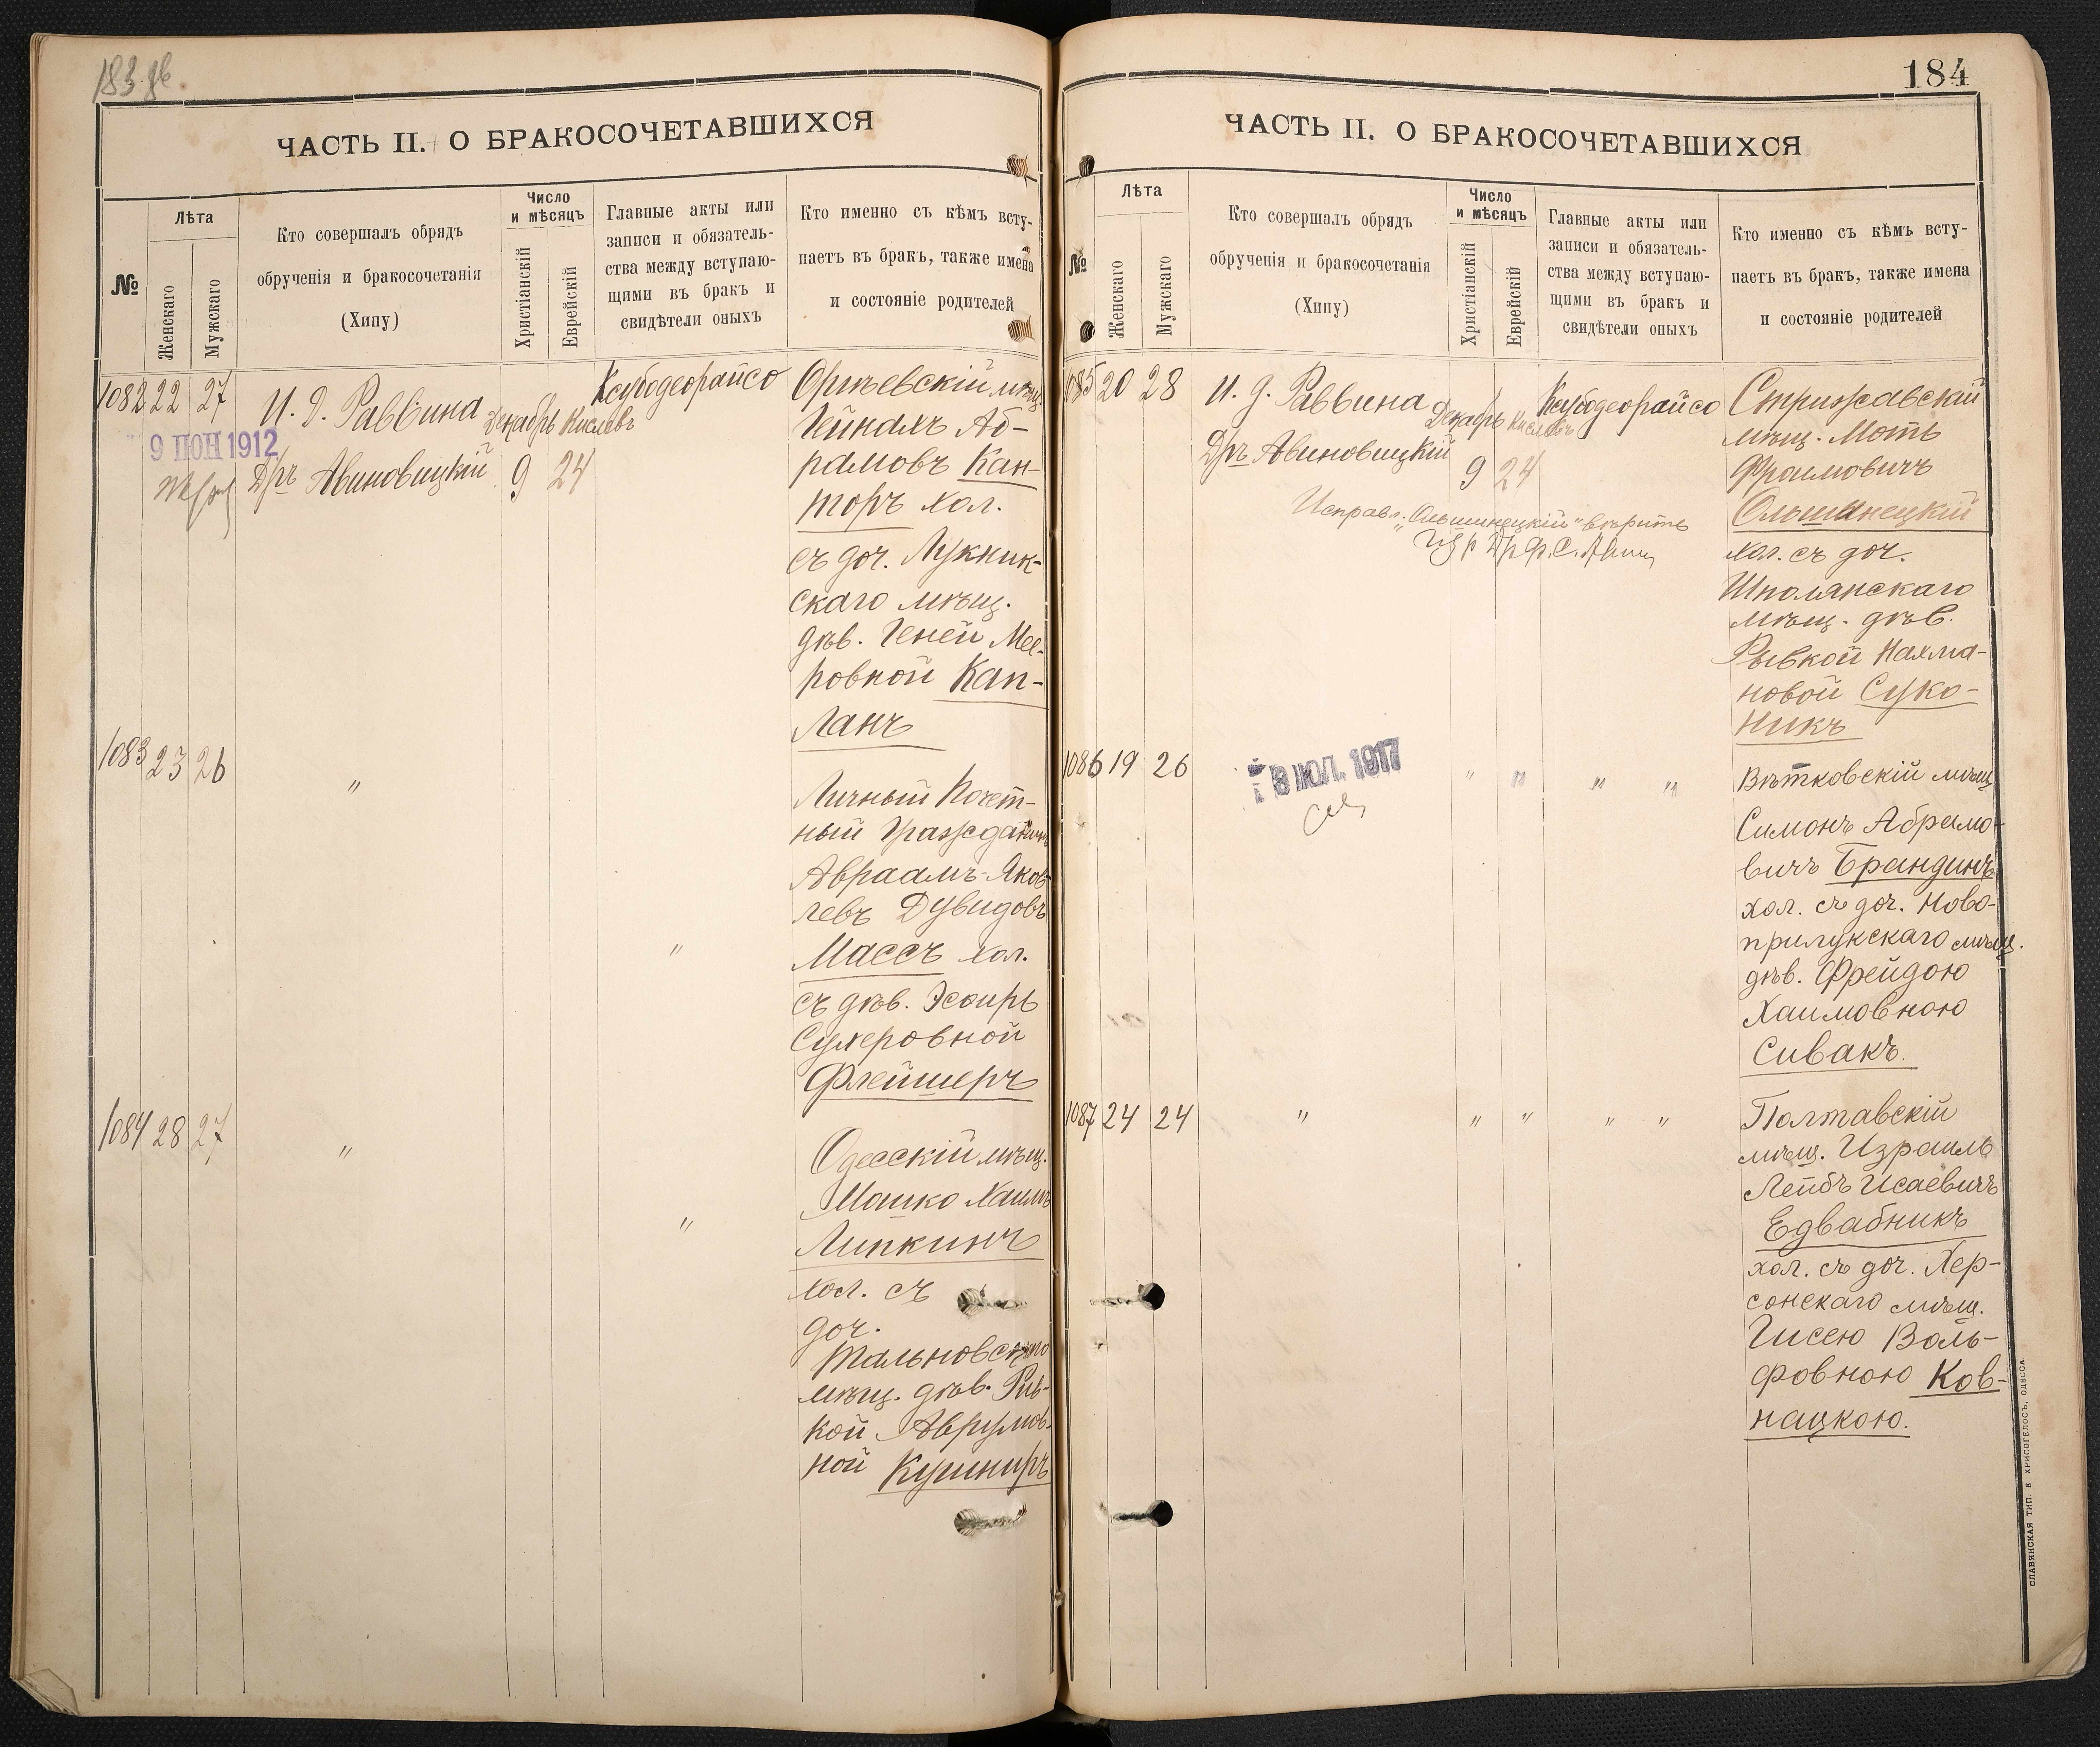 183 об.
ЧАСТЬ II. О БРАКОСОЧЕТАВШИХСЯ
№
Лѣта
Женскаго
Мужскаго
Кто совершалъ обрядъ
обрученія и бракосочетанія
(Хипу)
Число
и мѣсяцъ
Христіанскій
Еврейскій
Главные акты или
записи и обязатель-
ства между вступаю-
щими въ бракъ и
свидѣтели оныхъ
Кто именно съ кѣмъ всту-
паетъ въ бракъ, также имена
и состояніе родителей
1082 22 27
И. Д. Раввина
9 ІЮН 1912
Дръ Авиновицкій
Декабрь Кислевъ
9 24
Ксубодеорайсо
Оргѣевскій мѣщ.
Гейнахъ Аб-
рамовъ Кан-
торъ хол.
съ доч. Лукник-
скаго мѣщ.
дѣв. Геней Мее-
ровной Кап-
ланъ
1083 23 26
"
"
Личный Почет-
ный Гражданинъ
Авраамъ-Яков-
левъ Дувидовъ
Массъ хол.
съ дѣв. Эсѳирь
Сухеровной
Флейшеръ
1084 28 27
"
"
Одесскій мѣщ.
Мошко Хаимъ
Липкинъ
хол. съ
доч.
Тальновскаго
мѣщ. дѣв. Рив-
кой Аврумов-
ной Кушниръ
184
ЧАСТЬ II. О БРАКОСОЧЕТАВШИХСЯ
№
Лѣта
Женскаго
Мужскаго
Кто совершалъ обрядъ
обрученія и бракосочетанія
(Хипу)
Число
и мѣсяцъ
Христіанскій
Еврейскій
Главные акты или
записи и обязатель-
ства между вступаю-
щими въ бракъ и
свидѣтели оныхъ
Кто именно съ кѣмъ всту-
паетъ въ бракъ, также имена
и состояніе родителей
1085 20 28
И. д. Раввина
Дръ Авиновицкій
Декабрь Кислевъ
9 24
Ксубодеорайсо
Исправл. "Ольшинецкій" вѣрить
Стрижавскій
мѣщ. Моть
Фроимовичъ
Ольшинецкій
хол. съ доч.
Шполянскаго
мѣщ. дѣв.
Рывкой Нахма-
новой Суко-
никъ
1086 19 26
8 ІЮЛ. 1917
" " " "
Вѣтковскій мѣщ.
Симонъ Абрамо-
вичъ Брандинъ
хол. съ доч. Ново-
прилукскаго мѣщ.
дѣв. Фрейдою
Хаимовною
Сивакъ.
1087 24 24
" " " " "
Полтавскій
мѣщ. Израиль
Лейбъ Исаевичъ
Едвабникъ
хол. съ доч. Хер-
сонскаго мѣщ.
Гисею Воль-
фовною Ков-
нацкою.
СЛАВЯНСКАЯ ТИП. Е. ХРИСОГЕЛОСЪ, ОДЕССА.